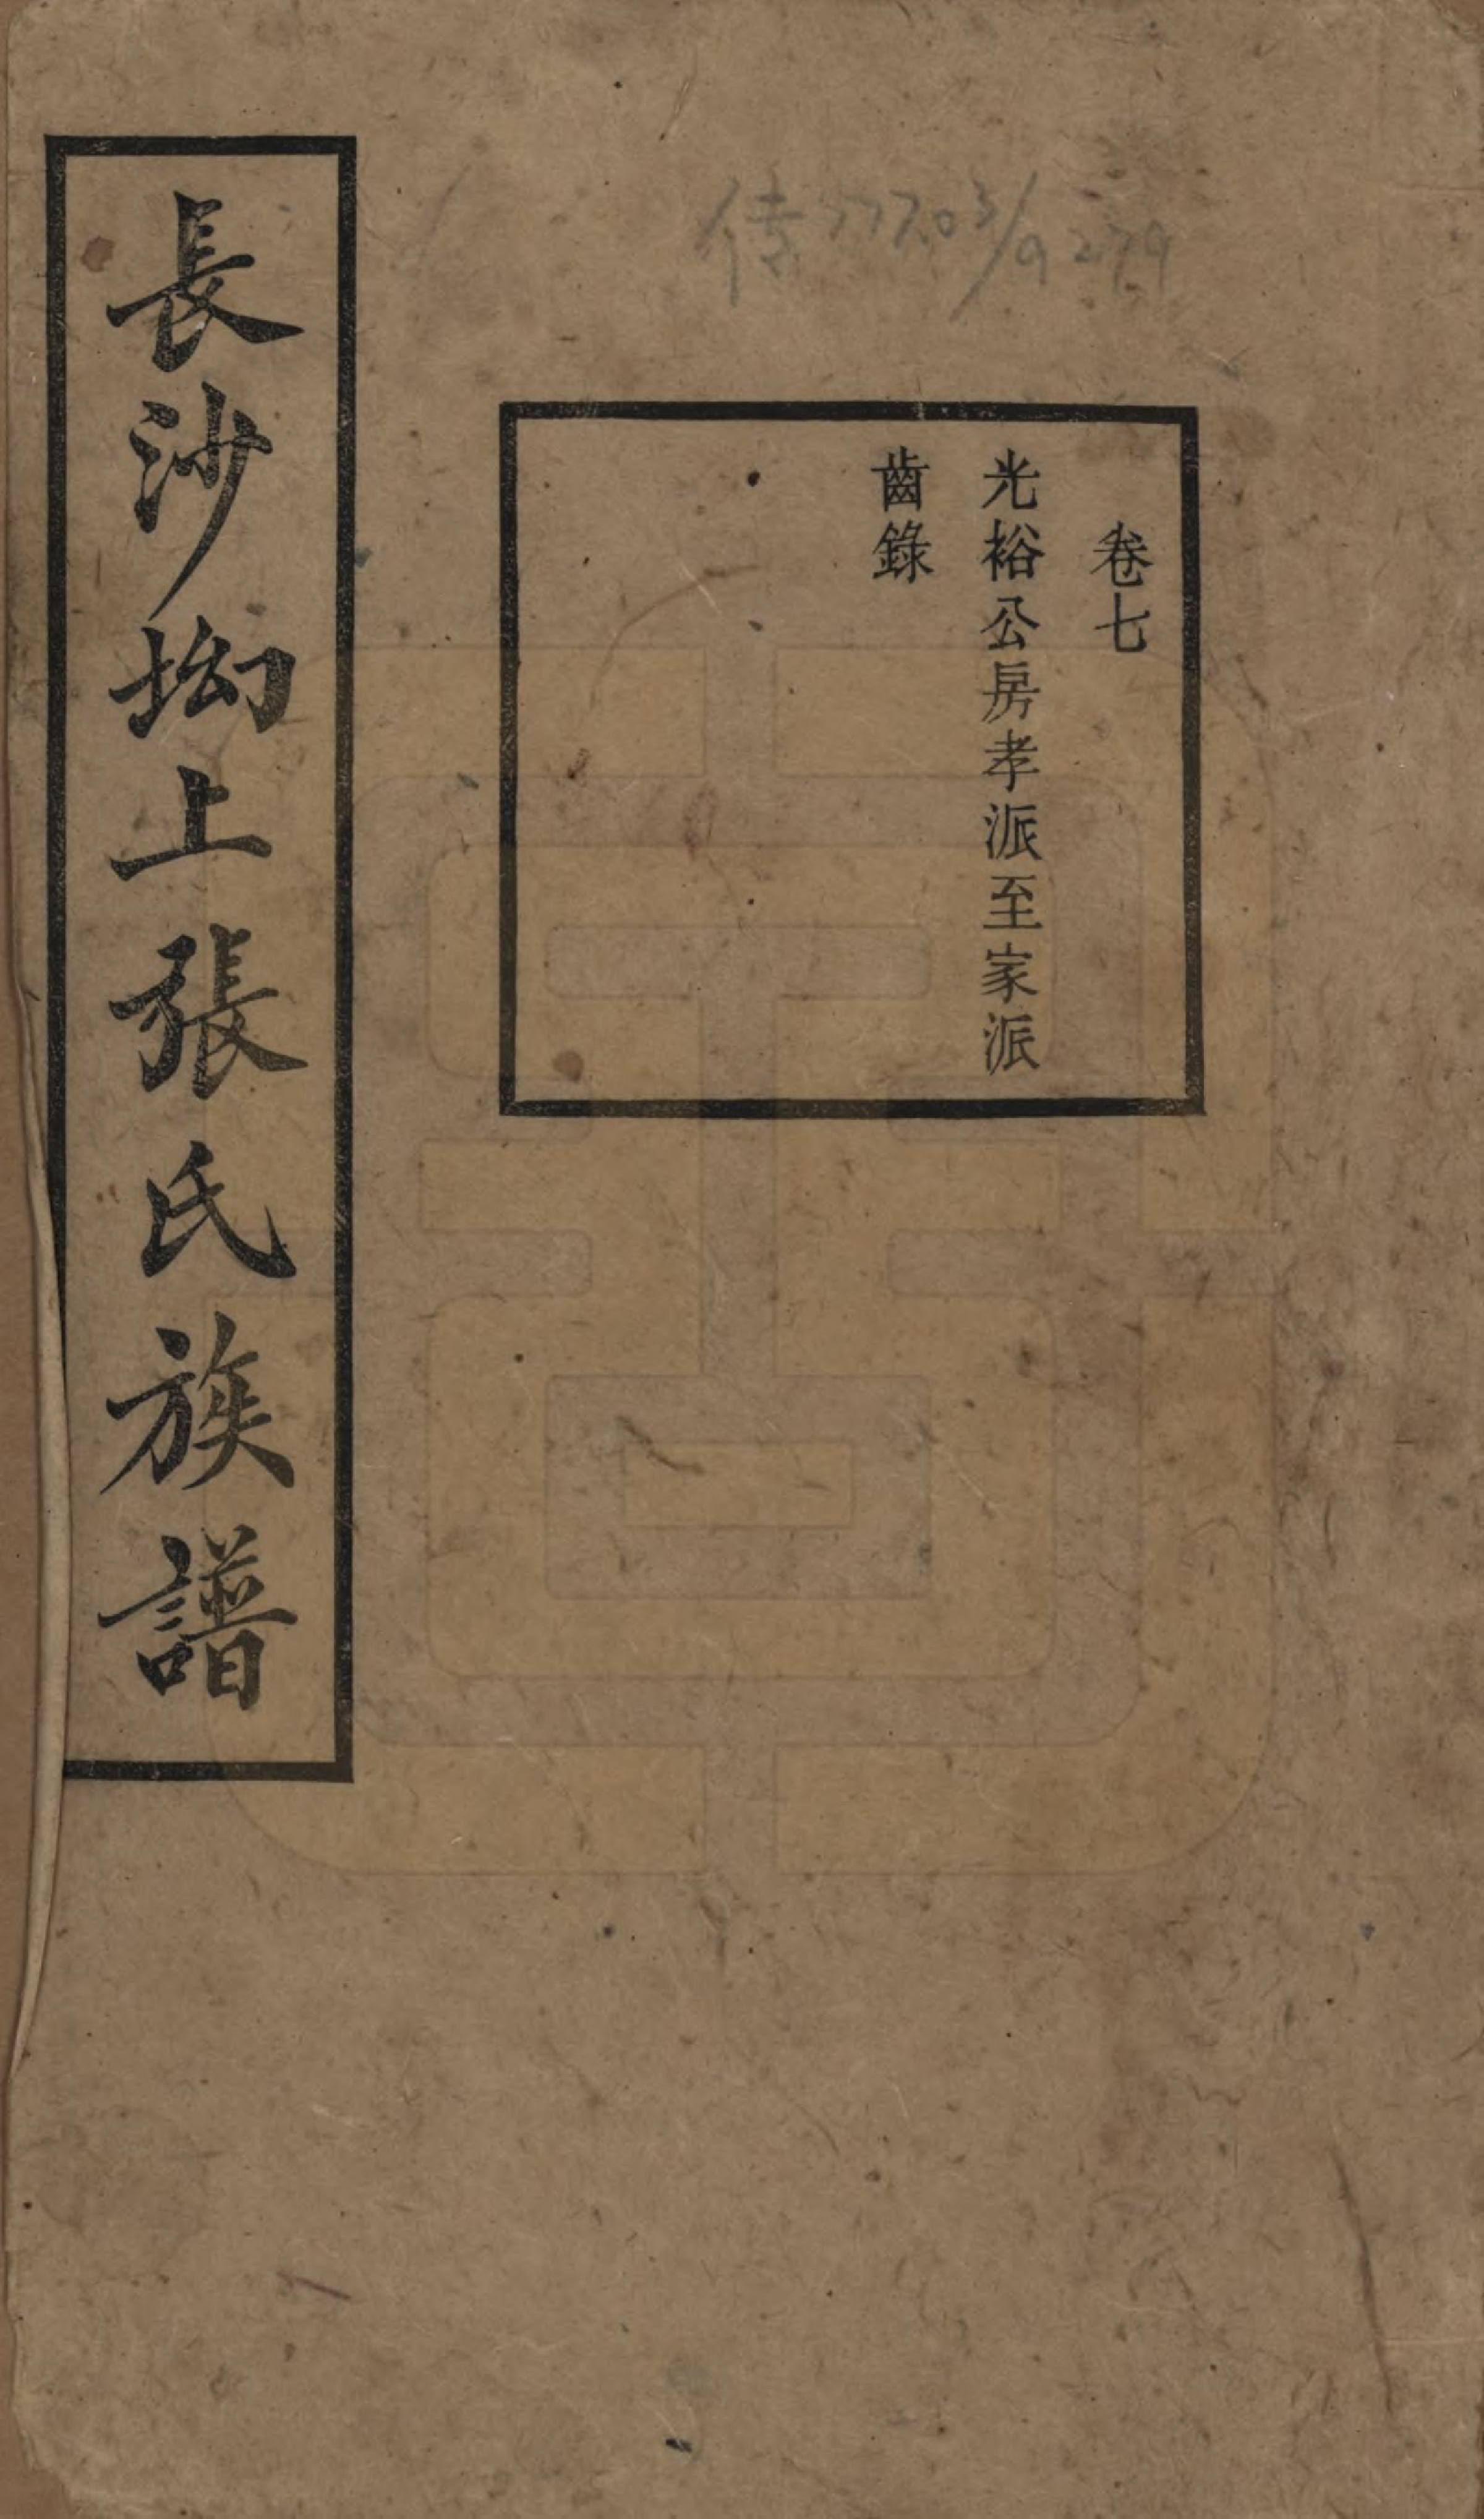 傳777.03/9279
卷七
光裕公房孝派至家派
齒錄
長沙坳上張氏族譜